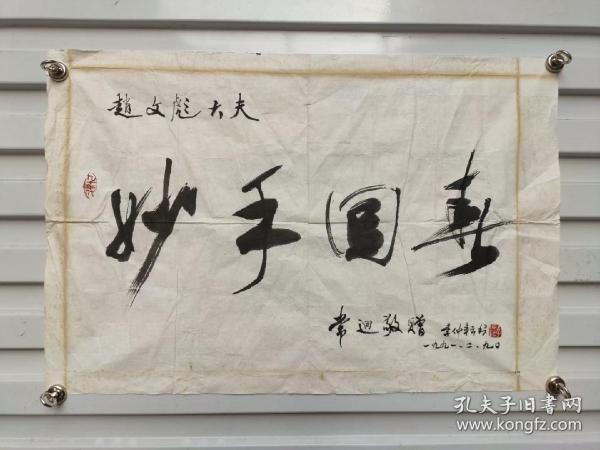 趙文彪大夫
妙手回春
常迴敬贈
李仲耘书
一九九一.二.九日
孔夫子旧書网
www.kongfz.com